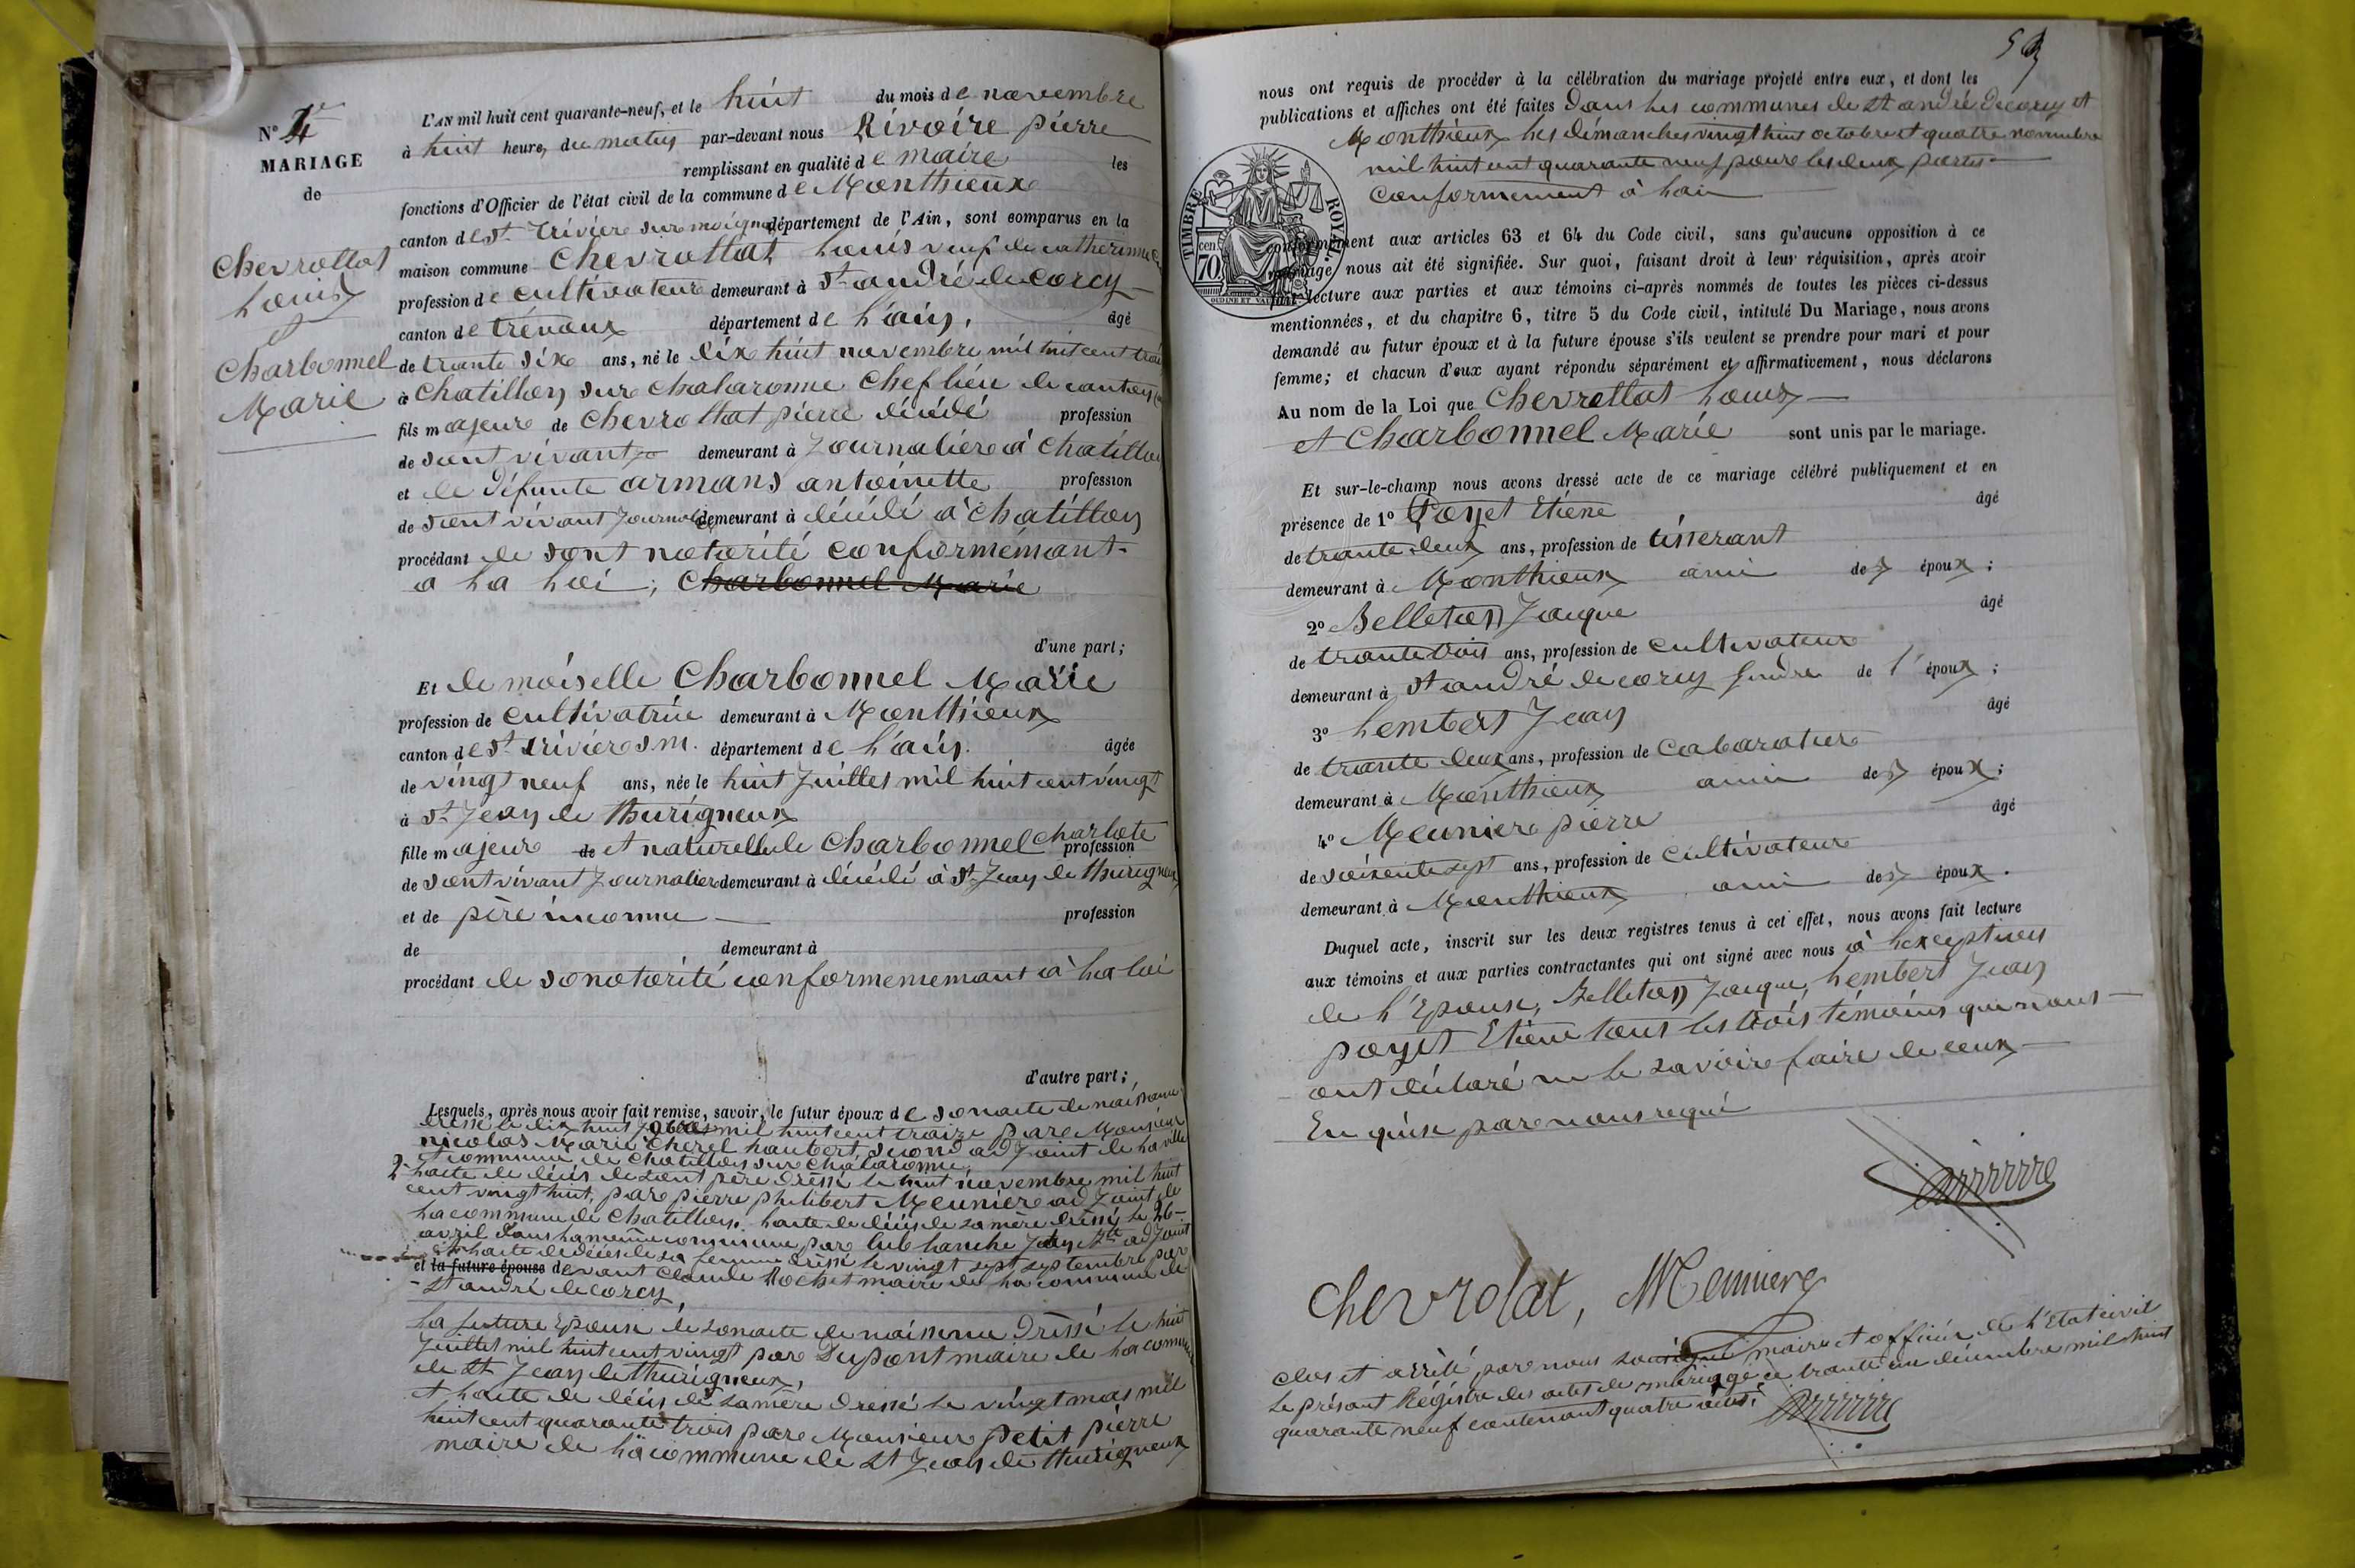 N° 4
MARIAGE
de
Chevrottat
Louis
et
Charbonnel
Marie
L'AN mil huit cent quarante-neuf, et le huit du mois de novembre
à huit heure, du matin par-devant nous Rivoire pierre
remplissant en qualité de maire les
fonctions d'Officier de l'état civil de la commune de Monthieux
canton de St Trivière sur moignan département de l'Ain, sont comparus en la
maison commune Chevrottat Louis veuf de catherinne
profession de cultivateur demeurant à St andré de corcy
canton de trévoux département de l'ain, âgé
de trante six ans, né le dix huit novembre mil huit cent
à Chatillon sur Chalaronne Chef lieu de canton
fils majeure de Chevrottat pierre décédé profession
de sont vivant demeurant à Journaliere à Chatillon
et de défunte armans antoinette profession
de sont vivant Journalier demeurant à décédé à Chatillon
procédant de sont notorité conformémant
a la Loi ; Charbonnel Marie
d'une part;
Et de moiselle Charbonnel Marie
profession de cultivatrice demeurant à Monthieux
canton de St trivière s m. département de l'ain. âgée
de vingt neuf ans, née le huit Juillet mil huit cent vingt
à St Jean de thurigneux
fille majeure de et naturelle de Charbonnel charlote
profession
de sont vivant Journaliere demeurant à décédé à St Jean de thurigneux
et de père inconnu profession
de demeurant à
procédant de sonotorité conformememant à la loi
d'autre part;
Lesquels, après nous avoir fait remise, savoir, le futur époux de sonacte de naissance
dressé le dix huit mil huit cent traize pare Monsieur
nicolas Marie haubert, second adjoint de la ville
et commune de Chatillon sur chalaronne,
2° lacte de décés de sont père dressé le huit novembre mil huit
cent vingt huit, pare pierre philibert Meuniere adjoint de
la commune de Chatillon. lacte de décés de sa mère dressé le 26
avril dans la même commune par adjoint
et lacte de décés de sa femme dressé le vingt sept septembre par
et la future épouse devant Claude Rochet maire de la commune de
St andré de corcy
La future Epouse de sonacte de naissance dressé le huit
Juillet mil huit cent vingt pare Dupont maire de la commune
de St Jean de thurigneux,
et lacte de décés de samère dressé le vingt mas mil
huit cent quarante trois pare Monsieur petit pierre
maire de la commune de St Jean de thurigneux
nous ont requis de procéder à la célébration du mariage projeté entre eux, et dont les
publications et affiches ont été faites dans les communes de St andré de corcy et
Monthieux les dimanches vingt huit octobre et quatre novembre
mil huit cent quarante neuf pour les deux partis
conformement à loi
TIMBRE ROYAL
cen
70
conformément aux articles 63 et 64 du Code civil, sans qu'aucune opposition à ce
mariage nous ait été signifiée. Sur quoi, faisant droit à leur réquisition, après avoir
fait lecture aux parties et aux témoins ci-après nommés de toutes les pièces ci-dessus
mentionnées, et du chapitre 6, titre 5 du Code civil, intitulé Du Mariage, nous avons
demandé au futur époux et à la future épouse s'ils veulent se prendre pour mari et pour
femme; et chacun d'eux ayant répondu séparément et affirmativement, nous déclarons
Au nom de la Loi que Chevrottat Louis
et Charbonnel Marie sont unis par le mariage.
Et sur-le-champ nous avons dressé acte de ce mariage célébré publiquement et en
présence de 1° Poyet Etiene âgé
de trante deux ans, profession de tisserant
demeurant à Monthieux ami des époux ;
2° Belleton Jacque âgé
de trante trois ans, profession de cultivateur
demeurant à St andré de corcy de l'époux ;
3° Lembert Jean âgé
de trante deux ans, profession de Cabaratiere
demeurant à Monthieux ami des époux ;
4° Meuniere pierre âgé
de soixente sept ans, profession de cultivateur
demeurant à Monthieux ami des époux .
Duquel acte, inscrit sur les deux registres tenus à cet effet, nous avons fait lecture
aux témoins et aux parties contractantes qui ont signé avec nous à l'exeption
de l'Epouse, Belleton Jacque, Lembert Jean
poyet Etiene tous les trois témoins qui nous
ont déclaré ne le savoire faire de ceux
En quise pare nous requi
Chevrolat, Meuniere
Clos et arrêté pare nous sousigné maire et officier de l'Etat civil
Le présant Régistre des actes de mariage ce trante un décembre mil huit
quarante neuf contenant quatre actes.